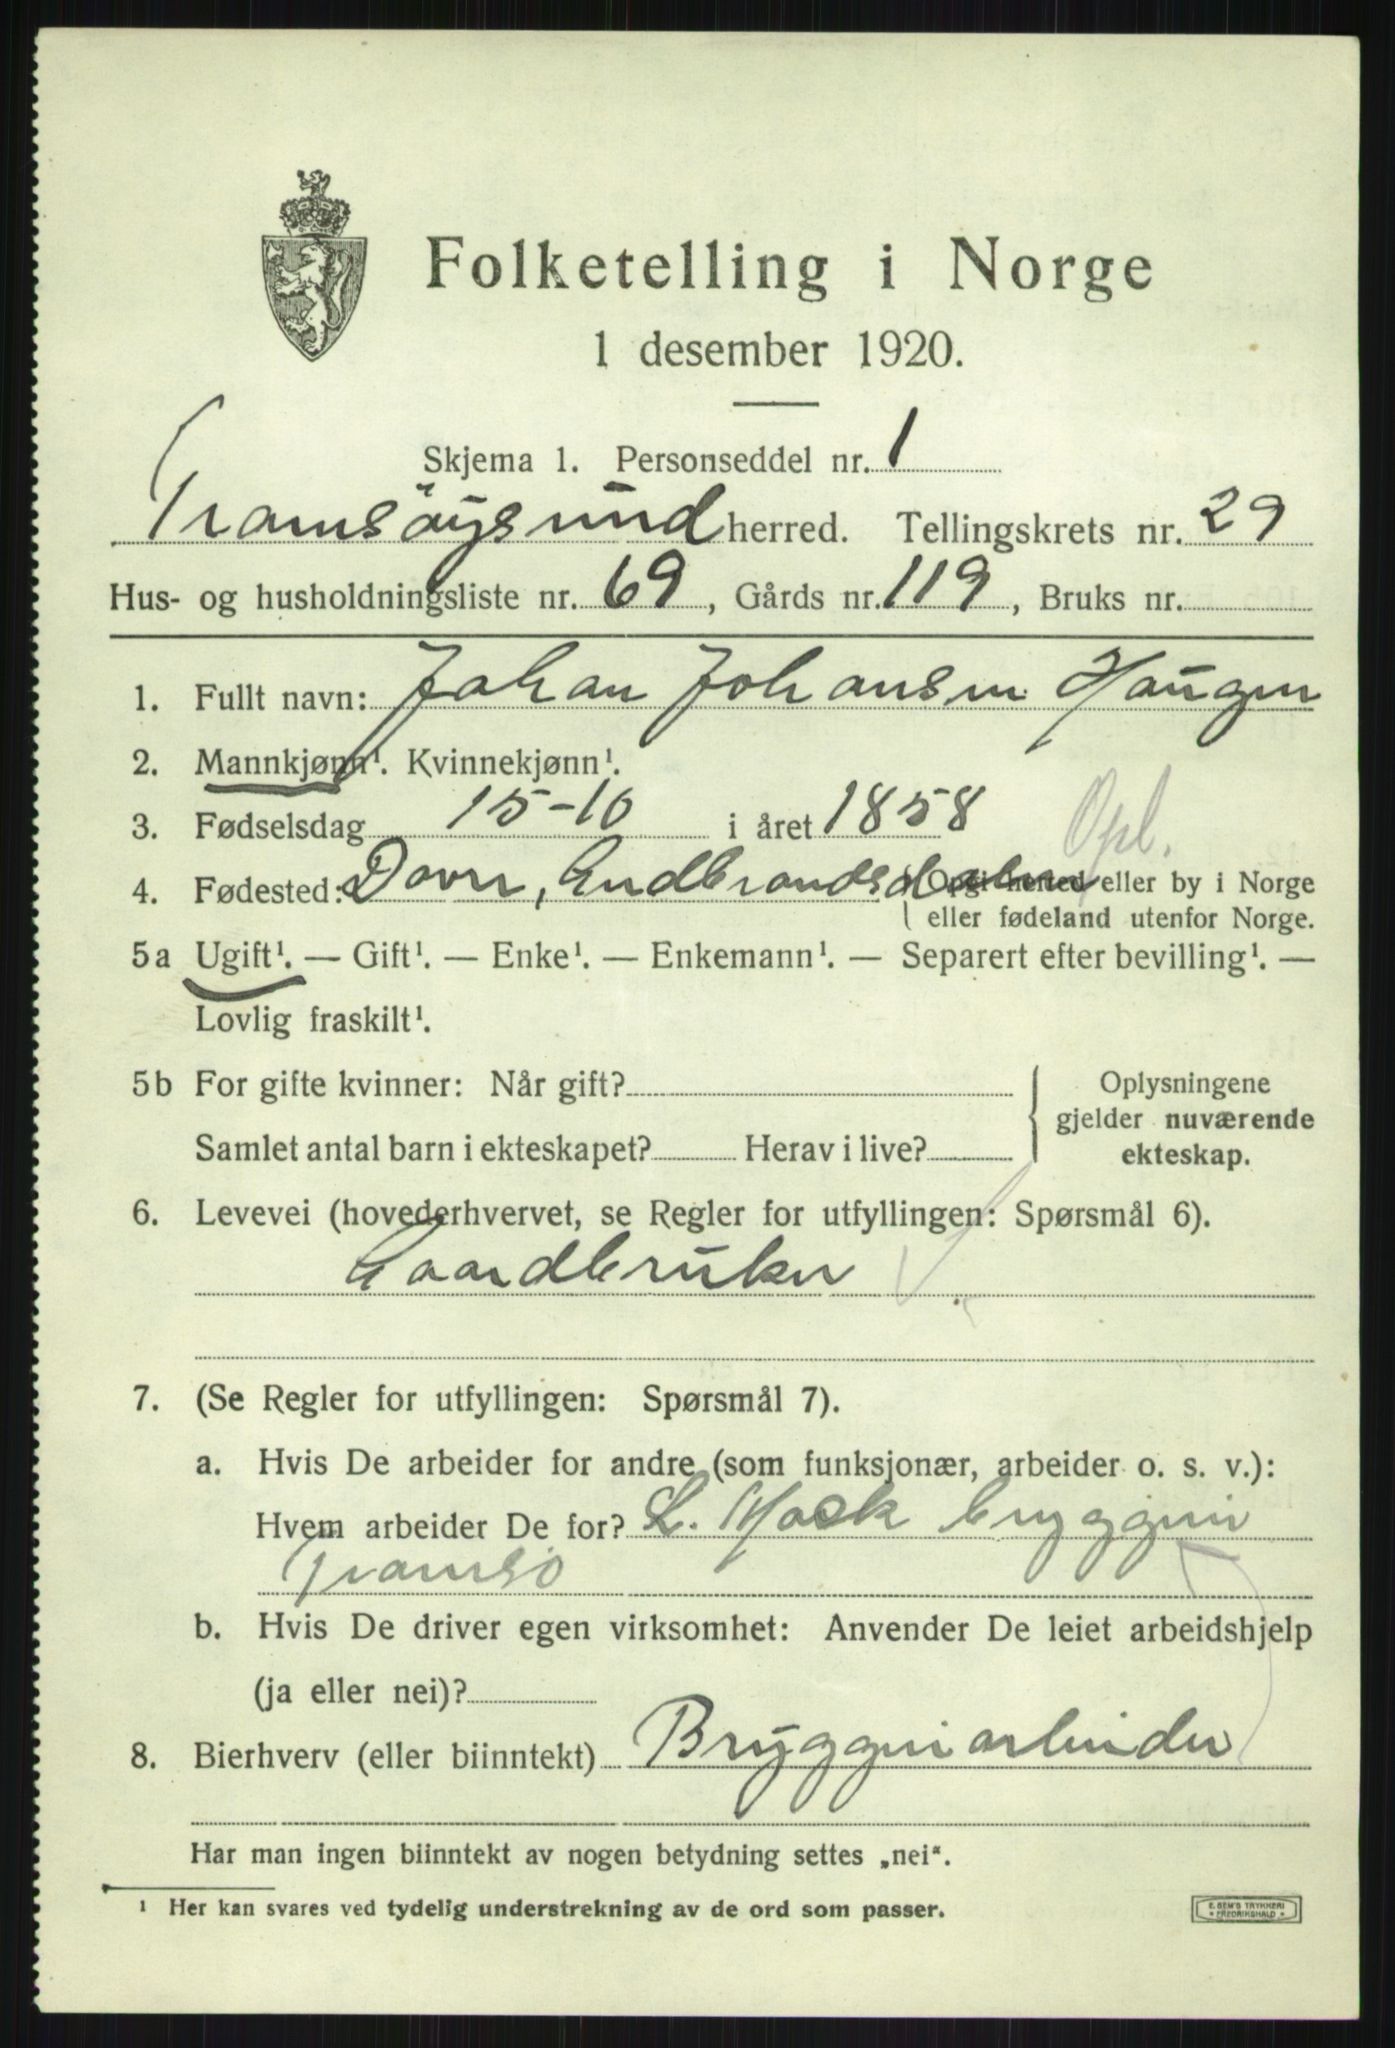 Folketelling i Norge
1 desember 1920.
Skjema 1. Personseddel nr. 1
Tromsöysund herred. Tellingskrets nr. 29
Hus- og husholdningsliste nr. 69, Gårds nr. 119, Bruks nr.
1. Fullt navn: Johan Johansen Haugen
2. Mannkjønn¹. Kvinnekjønn¹.
3. Fødselsdag 15-10 i året 1858
Opl.
4. Fødested: Dovre, Gudbrandsdalen Opgi herred eller by i Norge
eller fødeland utenfor Norge.
5a Ugift¹. — Gift¹. — Enke¹. — Enkemann¹. — Separert efter bevilling¹. —
Lovlig fraskilt¹.
5b For gifte kvinner: Når gift? Oplysningene
gjelder nuværende
Samlet antal barn i ekteskapet? Herav i live? ekteskap.
6. Levevei (hovederhvervet, se Regler for utfyllingen: Spørsmål 6).
Gaardbruker
7. (Se Regler for utfyllingen: Spørsmål 7).
a. Hvis De arbeider for andre (som funksjonær, arbeider o. s. v.):
Hvem arbeider De for? L. Mack bryggeri
Tromsö
b. Hvis De driver egen virksomhet: Anvender De leiet arbeidshjelp
(ja eller nei)?
8. Bierhverv (eller biinntekt) Bryggeriarbeider
Har man ingen biinntekt av nogen betydning settes „nei".
¹ Her kan svares ved tydelig understrekning av de ord som passer.
E. SEM'S TRYKKERI
FREDRIKSHALD